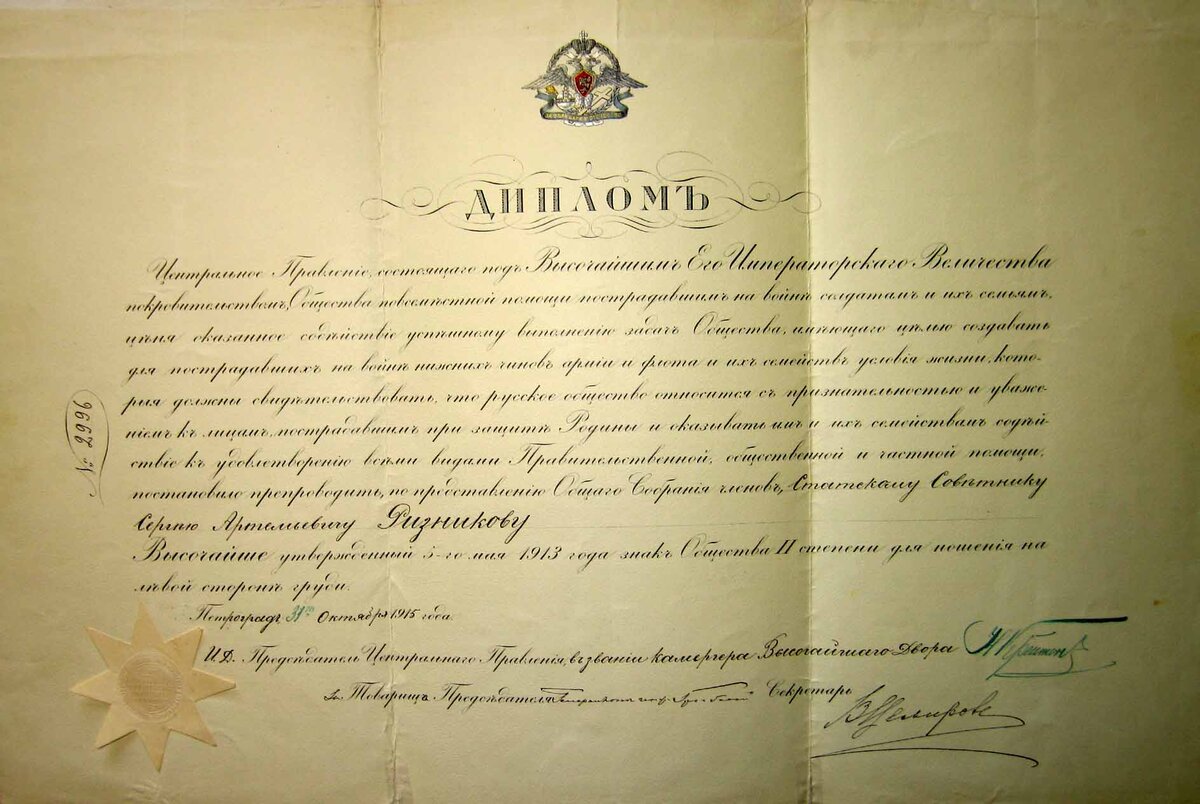 ДИПЛОМЪ
Центральное Правленіе, состоящаго подъ Высочайшимъ Его Императорскаго Величества
покровительствомъ, Общества повсемѣстной помощи пострадавшимъ на войнѣ солдатамъ и ихъ семьямъ,
цѣня оказанное содѣйствіе успѣшному выполненію задачъ Общества, имѣющаго цѣлью создавать
для пострадавшихъ на войнѣ нижнихъ чиновъ арміи и флота и ихъ семействъ условія жизни, кото-
рыя должны свидѣтельствовать, что русское общество относится съ признательностью и уваже-
ніемъ къ лицамъ, пострадавшимъ при защитѣ Родины и оказывать имъ и ихъ семействамъ содѣй-
ствіе къ удовлетворенію всѣми видами Правительственной, общественной и частной помощи,
постановило препроводить, по представленію Общаго Собранія членовъ, Статскому Совѣтнику
Сергѣю Артемьевичу Ризникову
Высочайше утвержденный 5-го мая 1913 года знакъ Общества II степени для ношенія на
лѣвой сторонѣ груди.
Петроградъ 31го Октября 1915 года.
И.Д. Предсѣдатель Центральнаго Правленія, въ званіи камергера Высочайшаго Двора
За Товарищъ Предсѣдателя
Секретарь
№ 2996